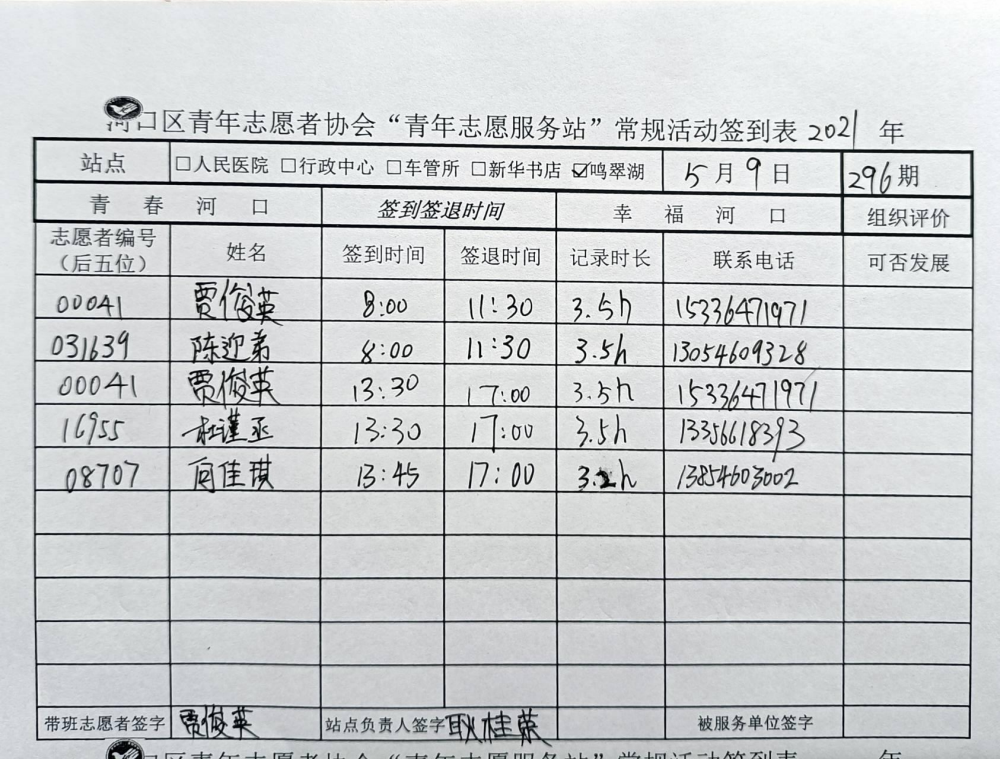 河口区青年志愿者协会“青年志愿服务站”常规活动签到表 2021 年
站点 □人民医院 □行政中心 □车管所 □新华书店 ☑鸣翠湖 5月9日 296期
青春河口 签到签退时间 幸福河口 组织评价
志愿者编号（后五位） 姓名 签到时间 签退时间 记录时长 联系电话 可否发展
00041 贾俊英 8:00 11:30 3.5h 15336471971
031639 陈迎弟 8:00 11:30 3.5h 13054609328
00041 贾俊英 13:30 17:00 3.5h 15336471971
16955 杜谨丞 13:30 17:00 3.5h 13356618393
08707 向佳琪 13:45 17:00 3.2h 13854603002
带班志愿者签字 贾俊英 站点负责人签字 耿桂荣 被服务单位签字
口区青年志愿者协会“青年志愿服务站”常规活动签到表 年